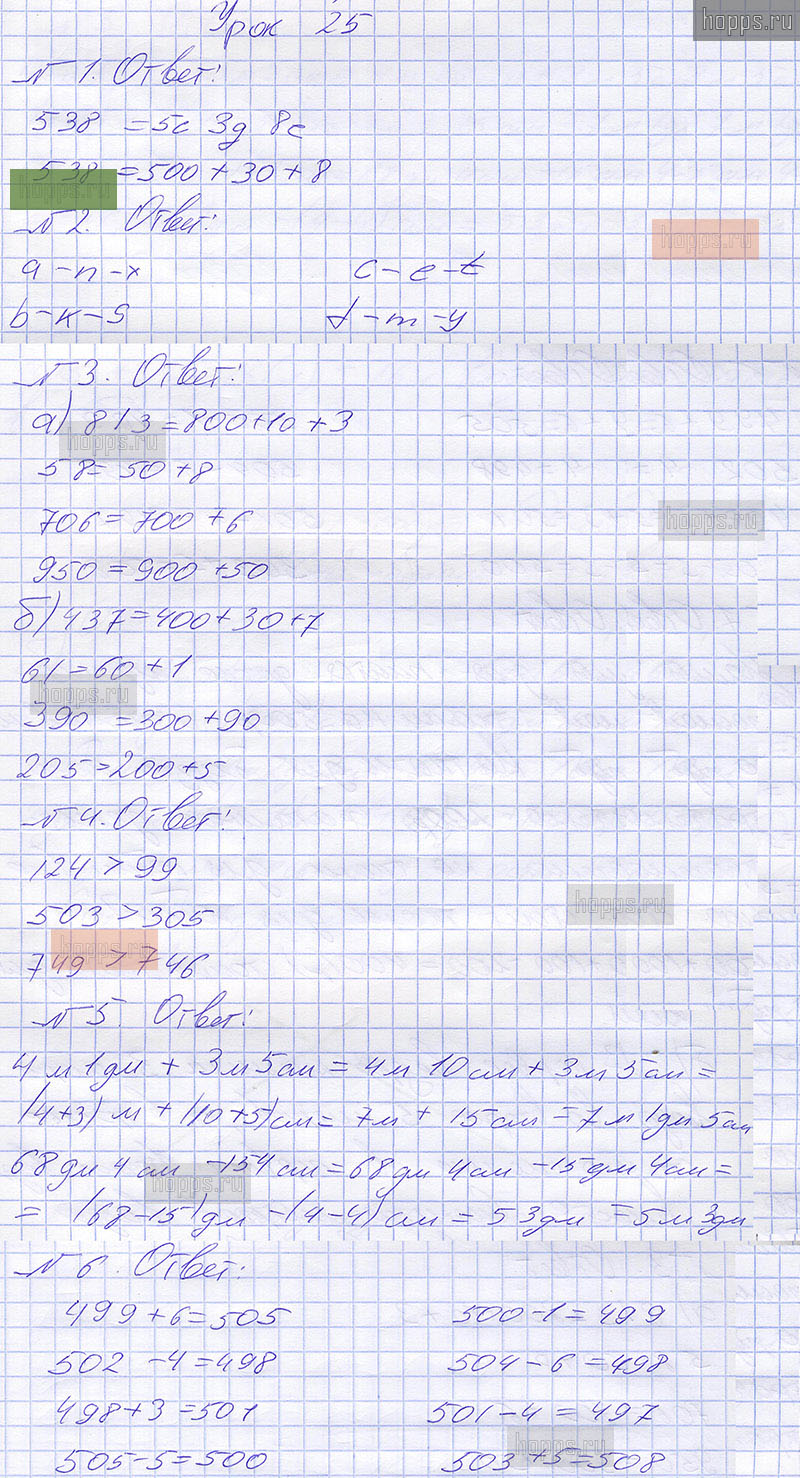 Урок 25
hopps.ru
№ 1. Ответ:
538 = 5с 3д 8е
538 = 500 + 30 + 8
hopps.ru
№ 2. Ответ:
hopps.ru
a – n – x c – e – t
b – к – s d – m – y
№ 3. Ответ:
а) 813 = 800+10 + 3
hopps.ru
58 = 50 + 8
706 = 700 + 6
hopps.ru
950 = 900 + 50
б) 437 = 400 + 30 + 7
61 = 60 + 1
hopps.ru
390 = 300 + 90
205 = 200 + 5
№ 4. Ответ:
124 > 99
503 > 305
hopps.ru
hopps.ru
749 > 746
№ 5. Ответ:
4 м 1 дм + 3 м 5 см = 4 м 10 см + 3 м 5 см =
(4+3) м + (10+5) см = 7 м + 15 см = 7 м 1 дм 5 см
68 дм 4 см – 154 см = 68 дм 4 см – 15 дм 4 см =
hopps.ru
= (68 – 15) дм – (4 – 4) см = 53 дм = 5 м 3 дм
№ 6. Ответ:
499 + 6 = 505 500 – 1 = 499
502 – 4 = 498 504 – 6 = 498
498 + 3 = 501 501 – 4 = 497
hopps.ru
505 – 5 = 500 503 + 5 = 508